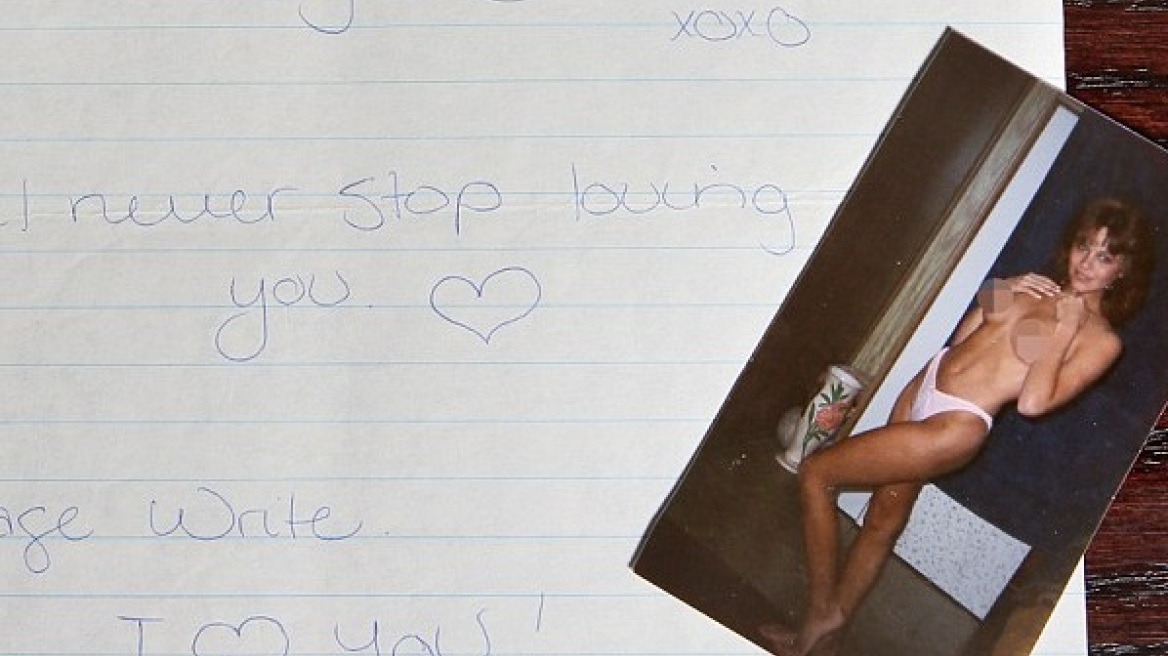 xoxo
never stop loving
you. ♡
write.
I ♡ you!